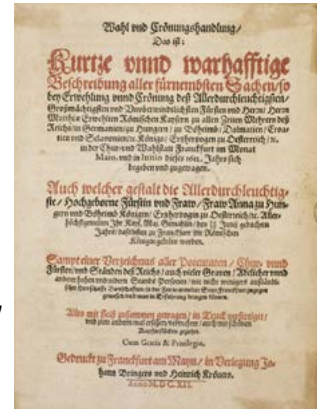 Wahl vnd Crönungshandlung/
Das ist:
Kurtze vnnd warhafftige
Beschreibung aller fürnembsten Sachen/ so
bey Erwehlung vnnd Crönung deß Allerdurchleuchtigsten/
Großmächtigsten vnd Vnüberwindtlichsten Fürsten vnd Herrn/ Herrn
Matthiæ Erwehlten Römischen Kaysern zu allen Zeiten Mehrern deß
Reichs/ in Germanien/ zu Hungern/ zu Böheimb/ Dalmatien/ Croa-
tien vnd Sclavonien/ &c. Königs/ Ertzhertzogen zu Oesterreich/ &c.
in der Chur vnd Wahlstatt Franckfurt im Monat
Maio, vnd in initio Junii dieses 1612. Jahrs sich
begeben vnd zugetragen.
Auch welcher gestalt die Allerdurchleuchtig-
ste/ Hochgeborne Fürstin vnd Fraw/ Fraw Anna zu Hun-
gern vnd Böheimb Königin/ Ertzhertzogin zu Oesterreich/ &c. Aller-
höchstgemelten Ihr Kays. May. Gemahlin/ den Junij gedachten
Jahrs daselbsten zu Franckfurt zur Römischen
Königin gekrönt worden.
Sampt einer Verzeichnus aller Potentaten/ Chur- vnnd
Fürsten/ vnd Ständen deß Reichs/ auch vieler Graven/ Adelicher vnnd
anderer hohen vnd nidern Stands Personen/
Alles mit fleiß zusammen getragen/ in Truck verfertiget/
Cum Gratia & Privilegio.
Gedruckt zu Franckfurt am Mayn/ in Verlegung Jo-
hann Bringers vnd Heinrich Kröners.
Anno M.D.C.XII.